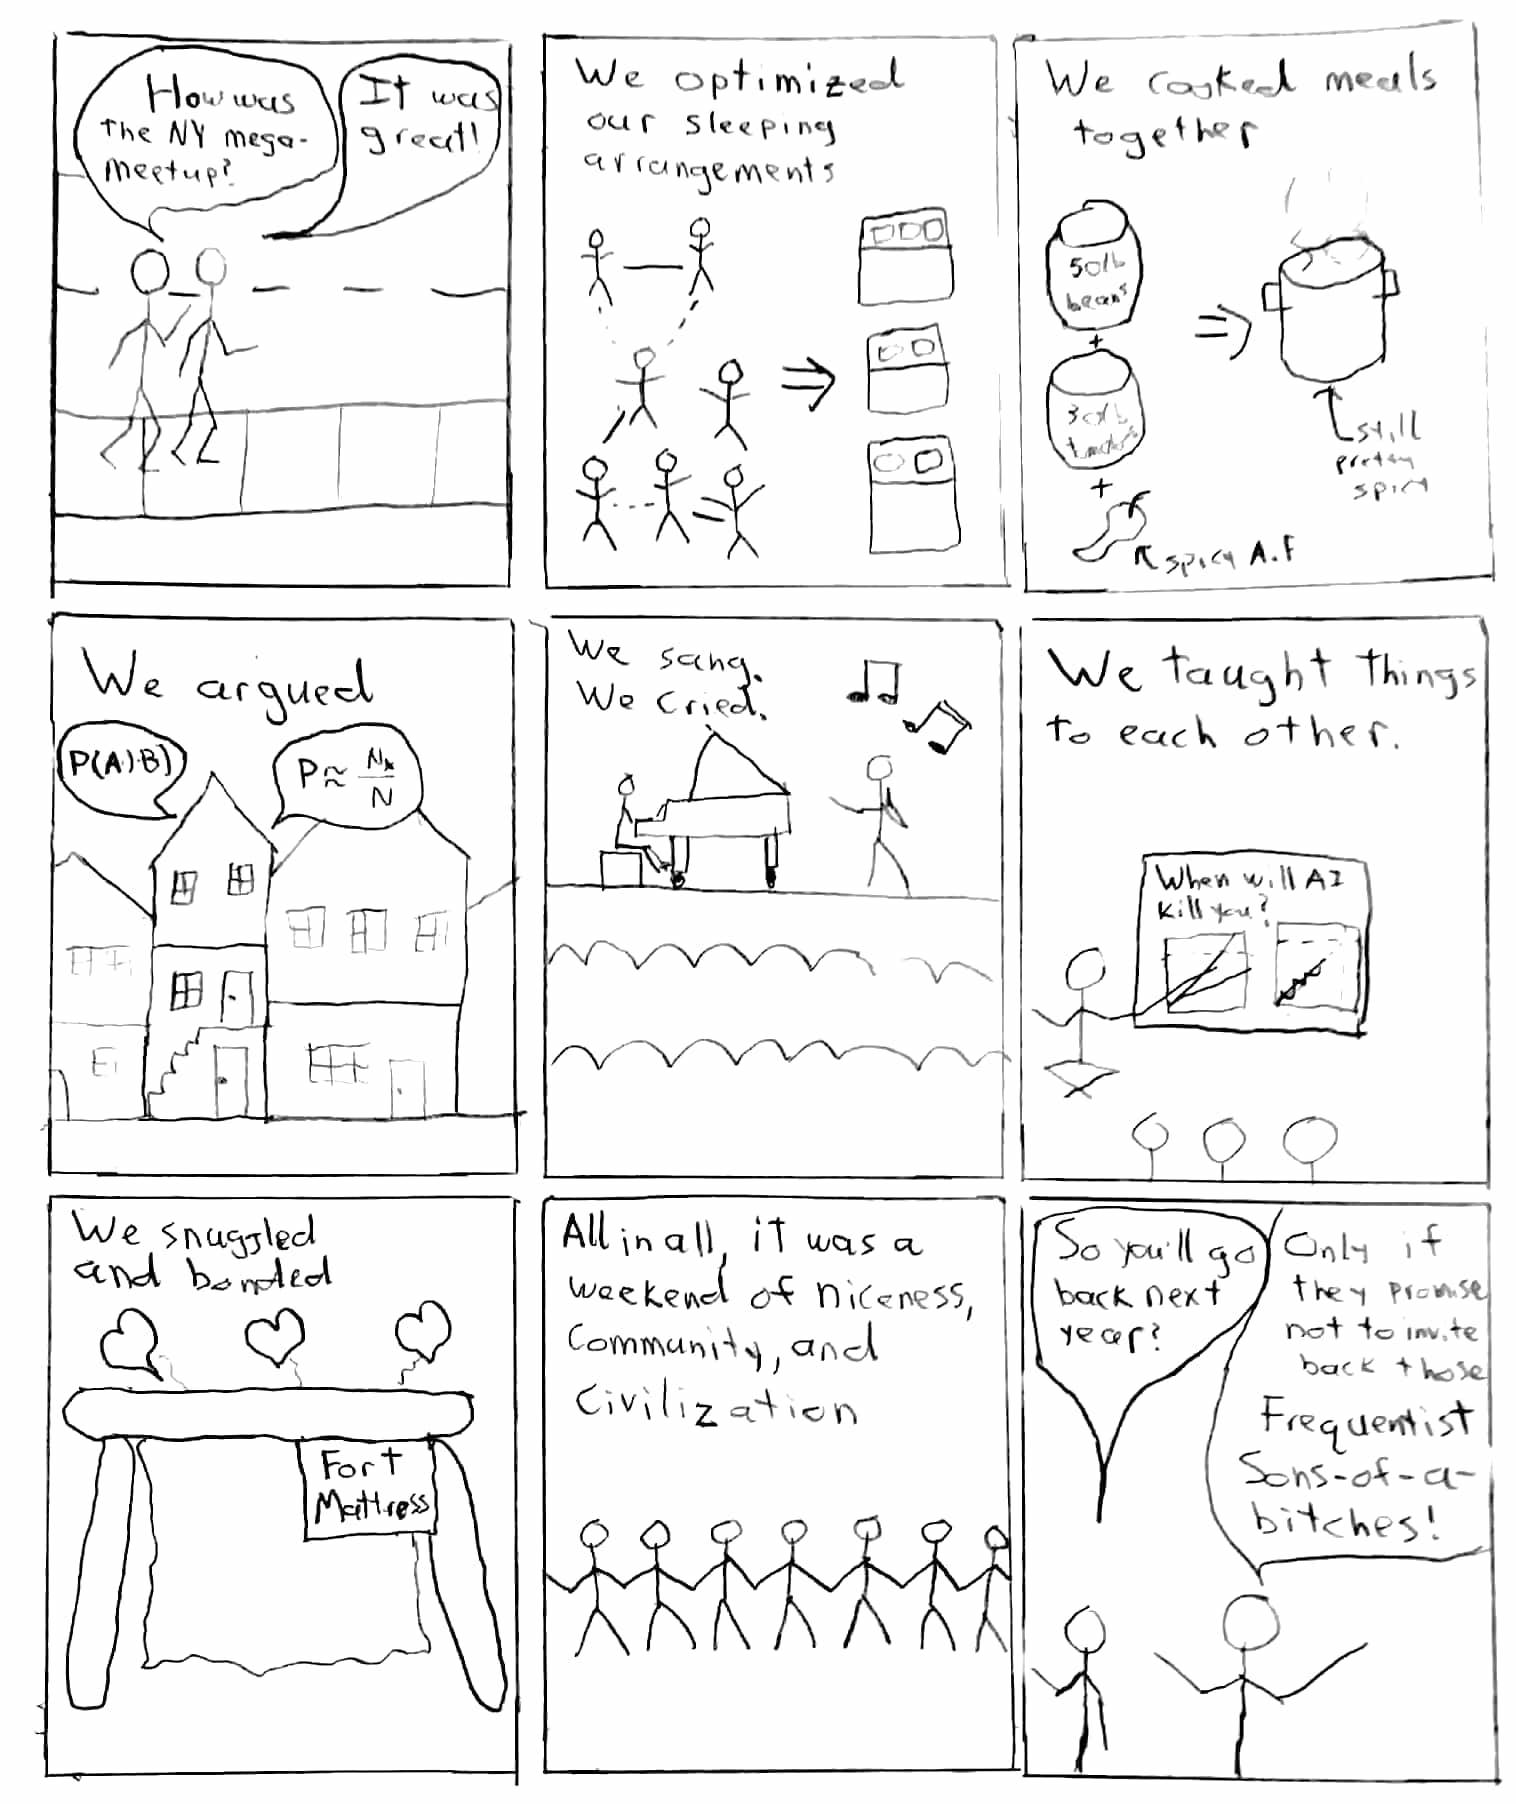 How was
the NY mega-
meetup?
It was
great!
We optimized
our sleeping
arrangements
We cooked meals
together
50lb
beans
+
30lb
+
spicy A.F
still
pretty
spicy
We argued
P(A)·B)
P≈ Nₖ/N
We sang.
We cried.
We taught things
to each other.
When will AI
kill you?
We snuggled
and bonded
Fort
Mattress
All in all, it was a
weekend of niceness,
Community, and
Civilization
So you'll go
back next
year?
Only if
they promise
not to invite
back those
Frequentist
Sons-of-a-
bitches!